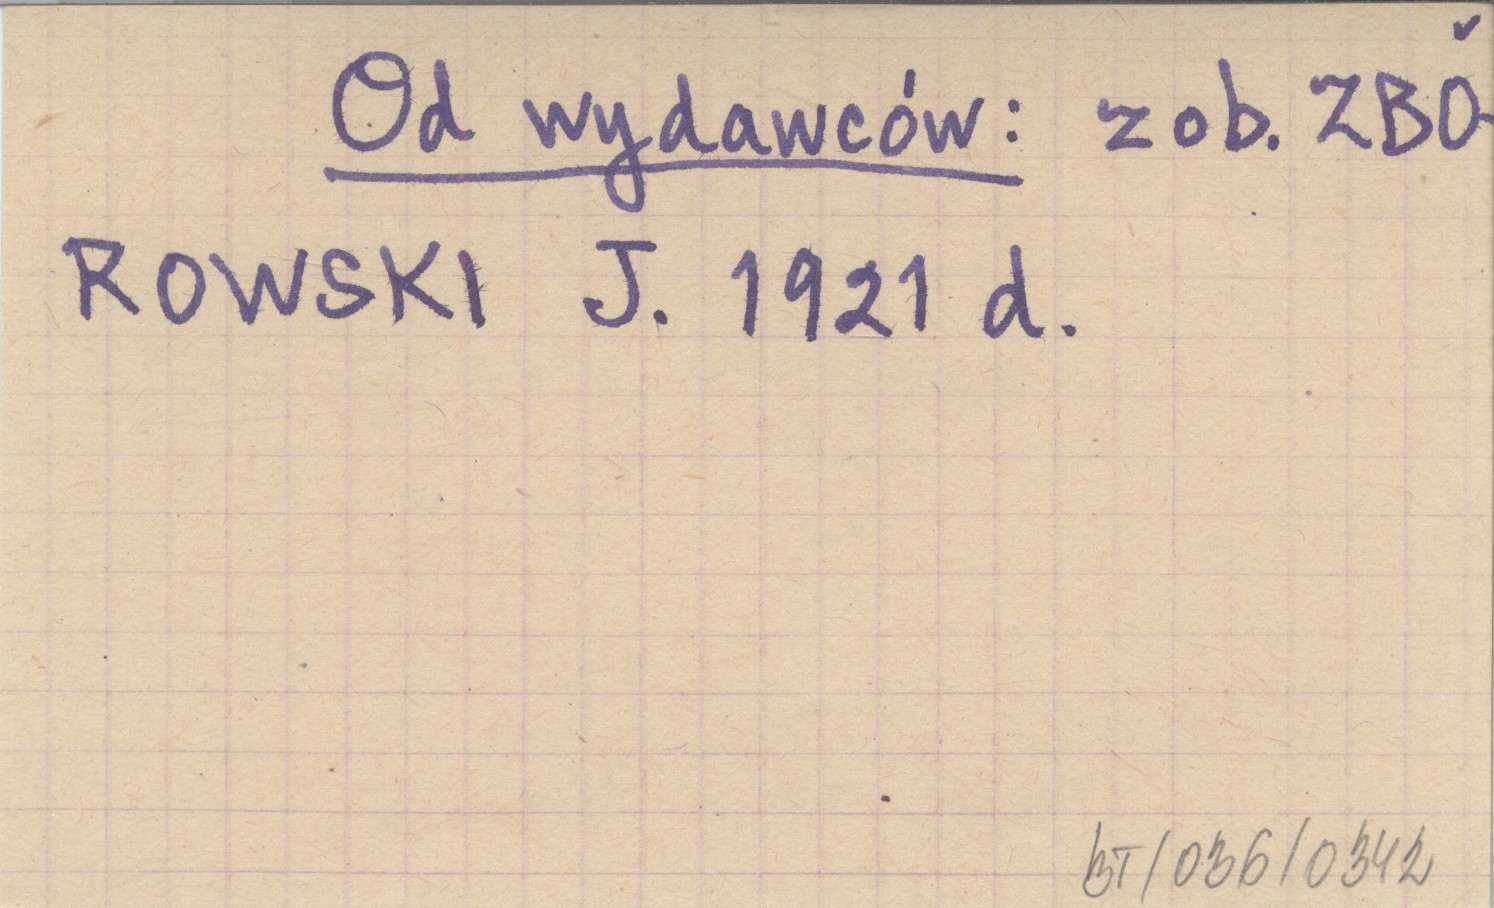 Od wydawców: zob. ZBO-
ROWSKI J. 1921 d.
BT/036/0342